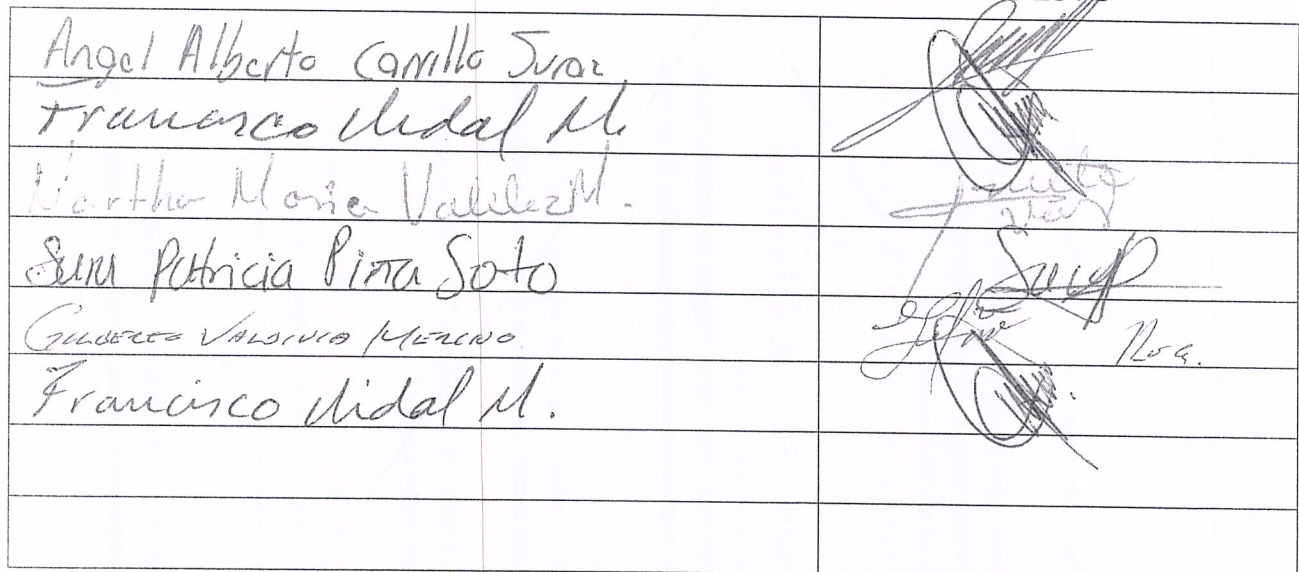 Angel Alberto Carrillo
Francisco Vidal M.
Martha Maria Valdez M.
Patricia Piña Soto
GILBERTO VALDIVIA MERINO
Francisco Vidal M.